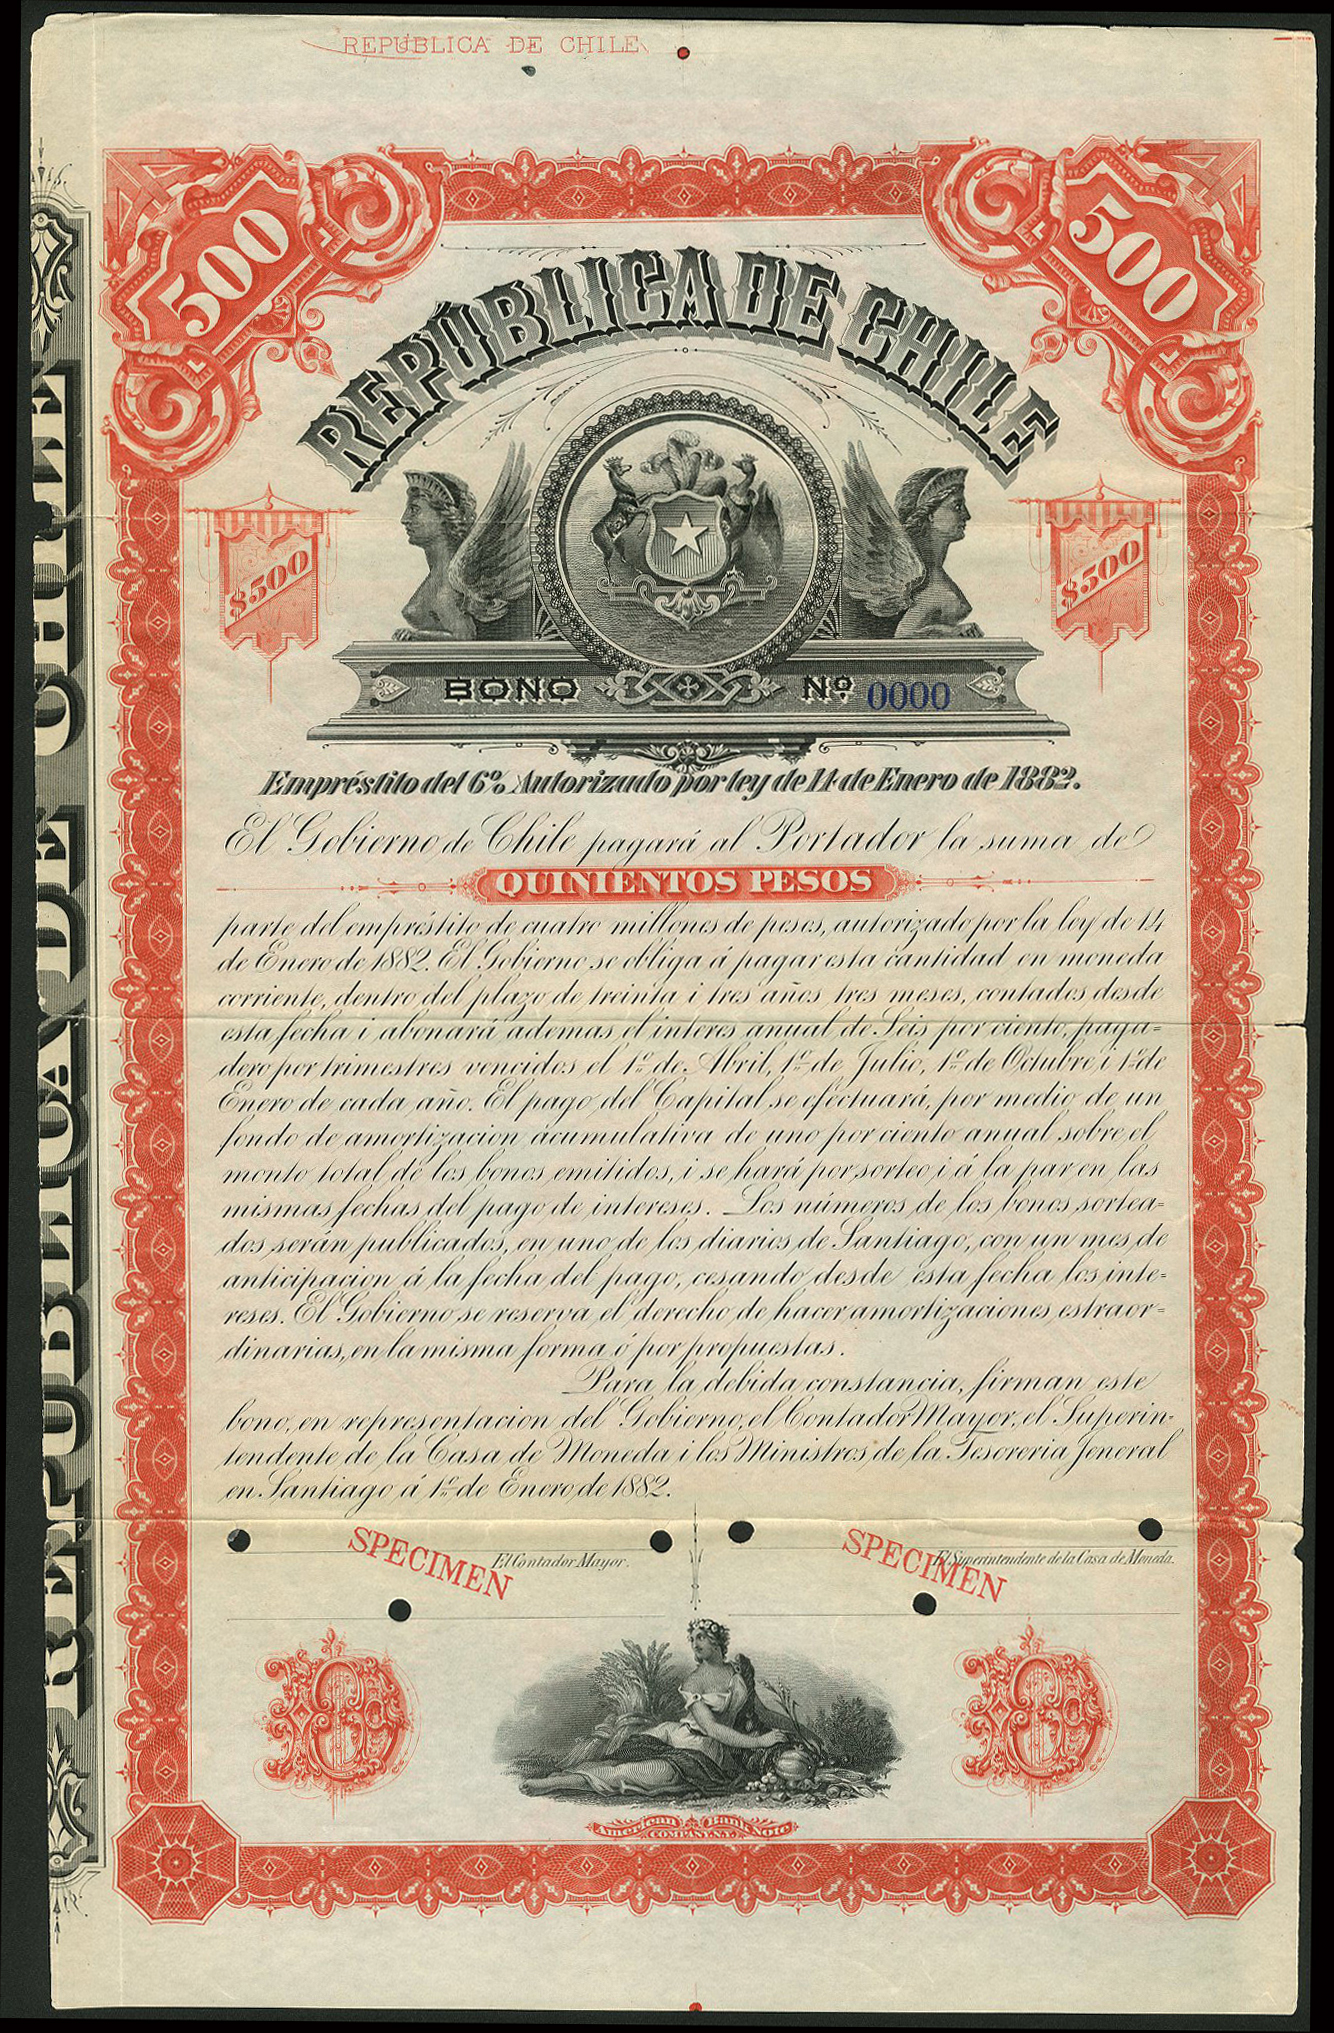 REPÚBLICA DE CHILE
500
500
REPÚBLICA DE CHILE
$500
$500
BONO Nº 0000
Empréstito del 6% Autorizado por ley de 14 de Enero de 1882.
El Gobierno de Chile pagará al Portador la suma de
QUINIENTOS PESOS
parte del empréstito de cuatro millones de pesos, autorizado por la ley de 14
de Enero de 1882. El Gobierno se obliga á pagar esta cantidad en moneda
corriente, dentro del plazo de treinta i tres años tres meses, contados desde
esta fecha i abonará ademas el interes anual de Seis por ciento, paga=
dero por trimestres vencidos el 1º de Abril, 1º de Julio, 1º de Octubre i 1º de
Enero de cada año. El pago del Capital se efectuará, por medio de un
fondo de amortizacion acumulativa de uno por ciento anual sobre el
monto total de los bonos emitidos, i se hará por sorteo i á la par en las
mismas fechas del pago de intereses. Los números de los bonos sortea=
dos serán publicados, en uno de los diarios de Santiago, con un mes de
anticipacion á la fecha del pago, cesando desde esta fecha los inte=
reses. El Gobierno se reserva el derecho de hacer amortizaciones estraor=
dinarias, en la misma forma ó por propuestas.
Para la debida constancia, firman este
bono, en representacion del Gobierno, el Contador Mayor, el Superin=
tendente de la Casa de Moneda i los Ministros de la Tesoreria Jeneral
en Santiago á 1º de Enero de 1882.
SPECIMEN
El Contador Mayor.
SPECIMEN
El Superintendente de la Casa de Moneda.
D
D
American Bank Note
COMPANY N.Y.
REPUBLICA DE CHILE